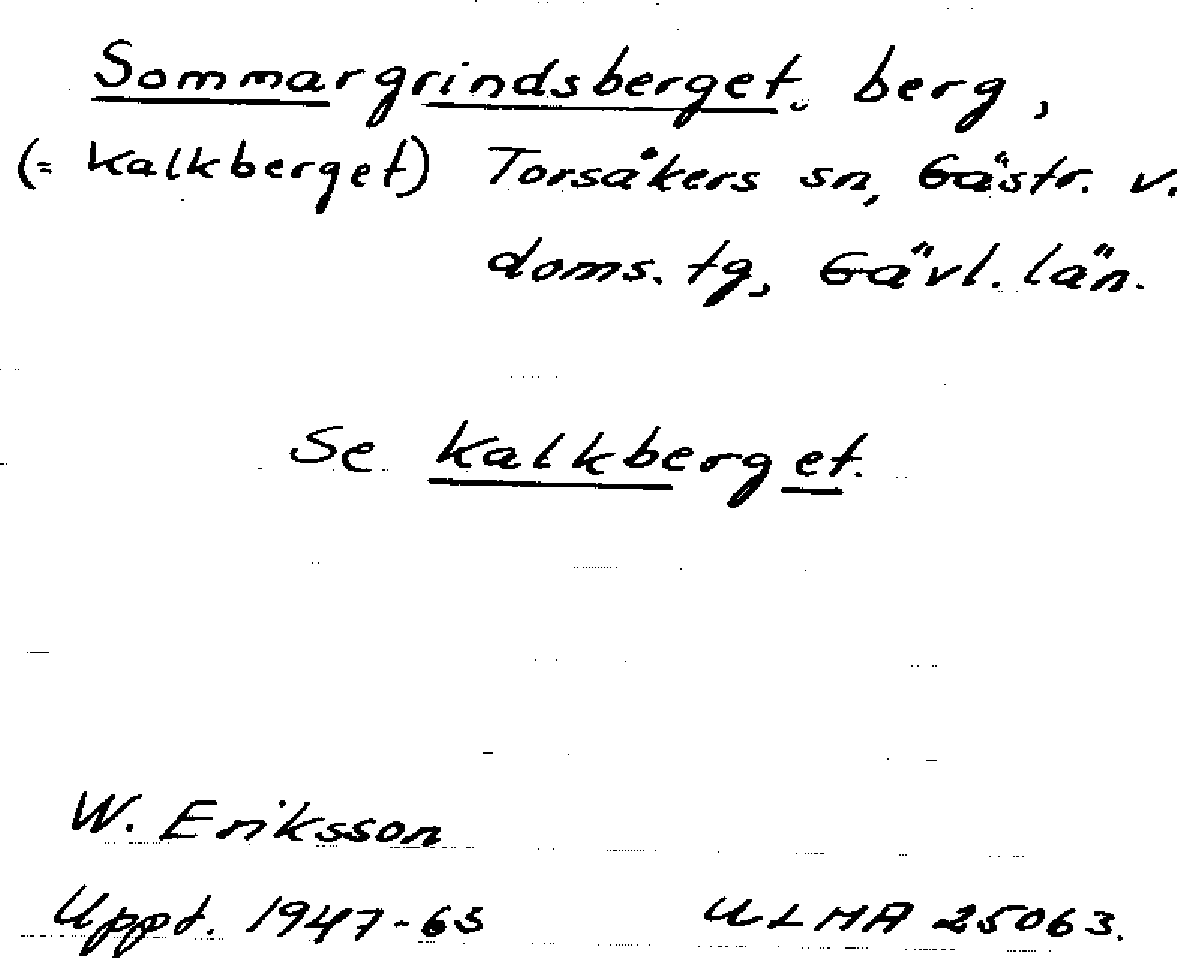 Sommargrindsberget. berg,
(= Kalkberget) Torsåkers sn, Gästr. v.
doms. tg, Gävl. län.
Se Kalkberget.
W. Eriksson
Uppt. 1947-63
ULMA 25063.